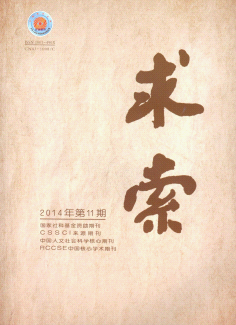 求
索
2014年第11期
国家社科基金资助期刊
CSSCI来源期刊
中国人文社会科学核心期刊
RCCSE中国核心学术期刊